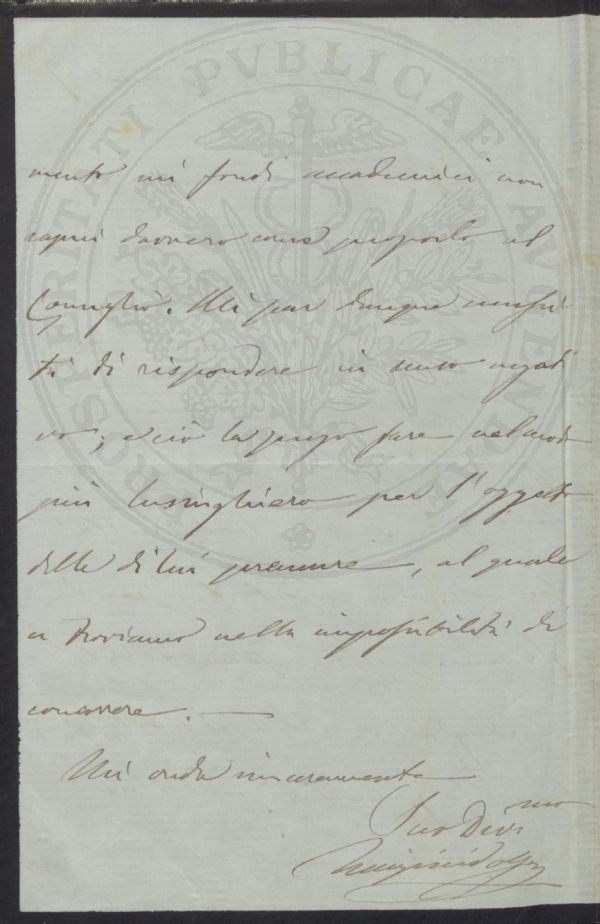 PROSPERITATI PVBLICAE AVGENDAE
mento ni fondi accademici non
saprei davvero come proporlo al
Consiglio. Mi par dunque
di rispondere in senso negati
vo; e ciò la prego fare nel modo
più lusinghiero per l'oggetto
delle di lui premure, al quale
ci troviamo nella impossibilità di
concorrere.
Mi creda sinceramente
Suo Dev.mo